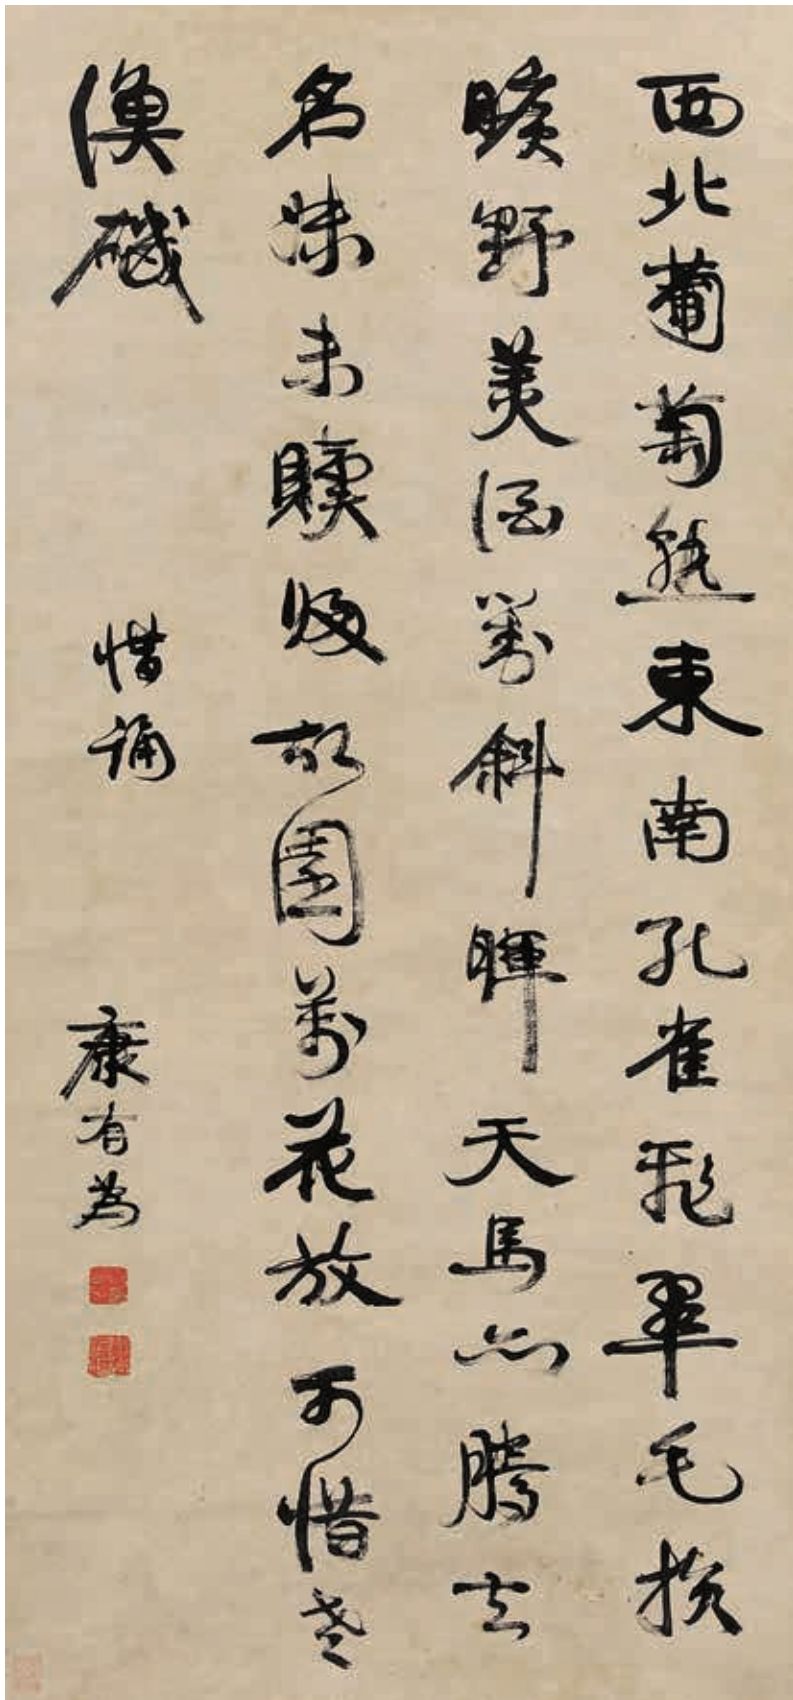 西北葡萄熟東南孔雀飛翠毛
曠野美酒對斜暉天馬亦騰去
名姝未贖歸故園萬花放可惜老
漁磯
惜誦
康有為